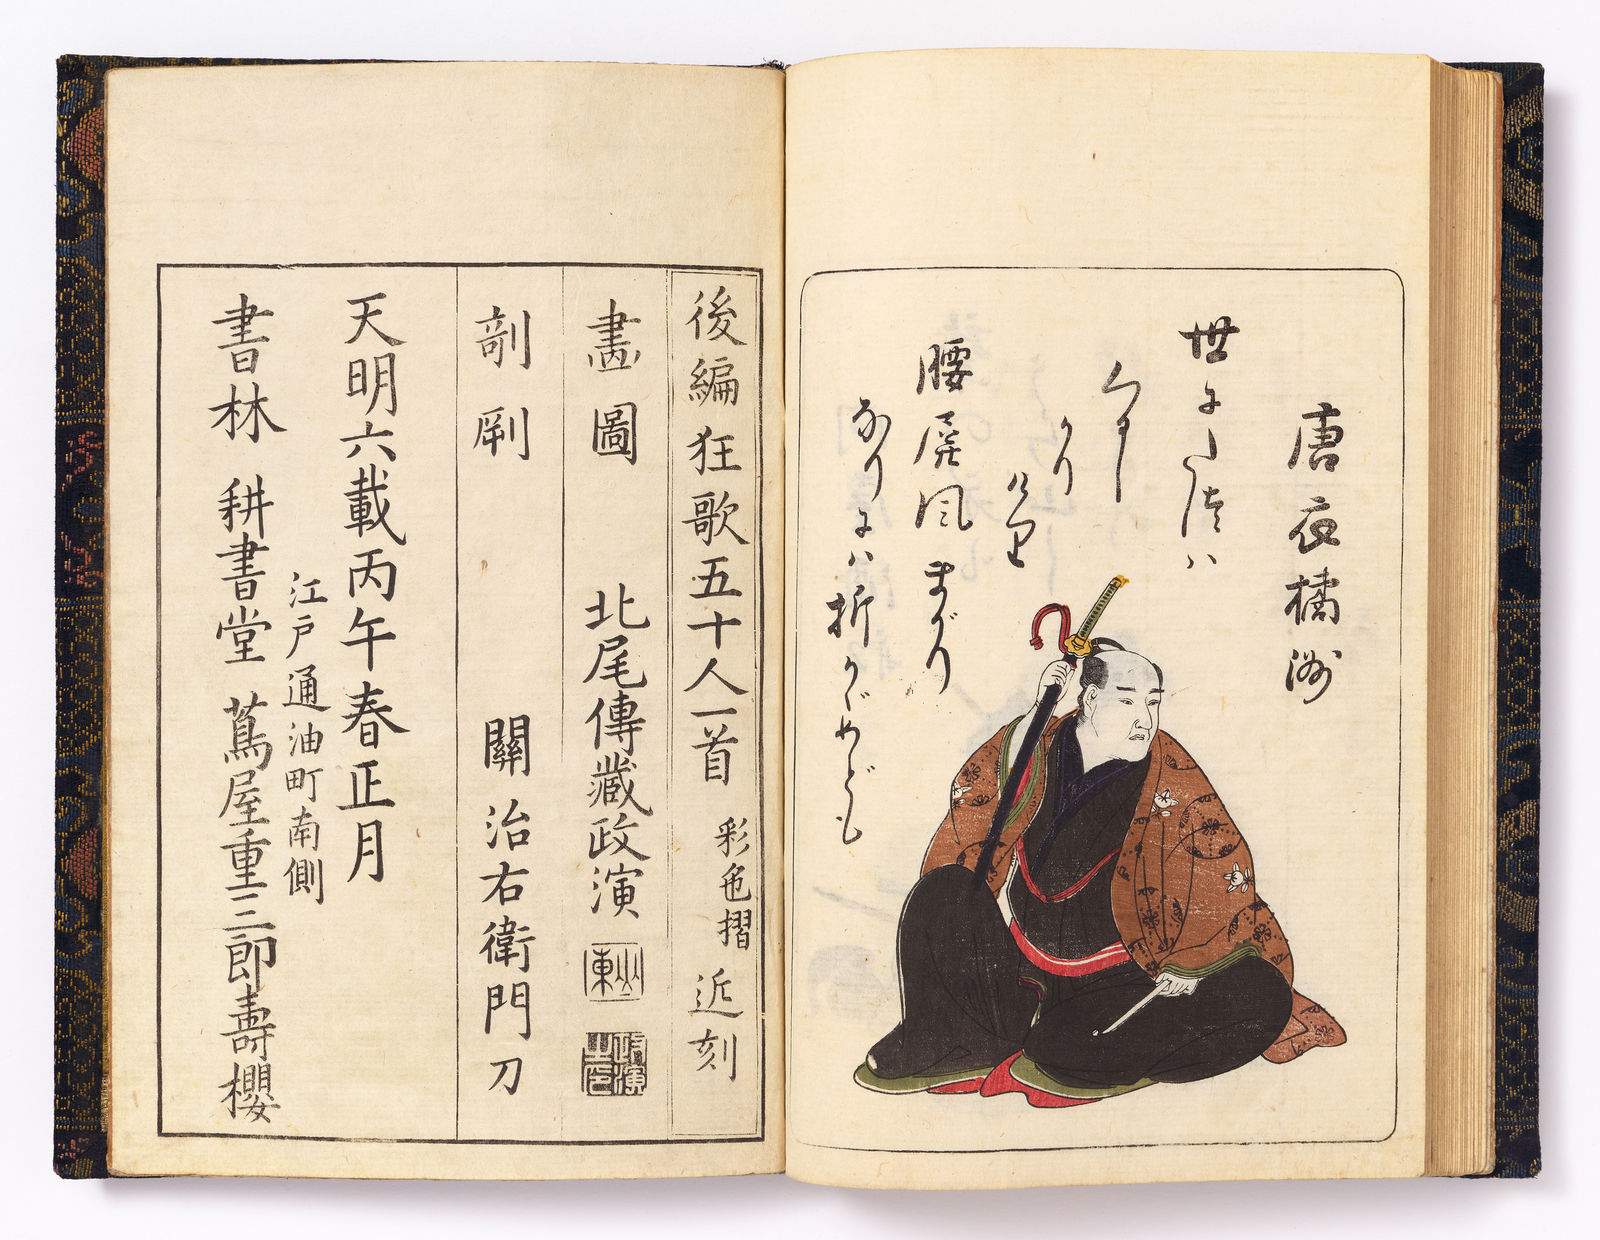 唐衣橘洲
世にたつハ
くるし
かり
けり
腰屏風まがり
なりにハ折かゞめども
後編狂歌五十人一首 彩色摺 近刻
畫圖 北尾傳藏政演 山東 政演之印
剞劂 關治右衛門刀
天明六載丙午春正月
江戸通油町南側
書林 耕書堂 蔦屋重三郎壽櫻